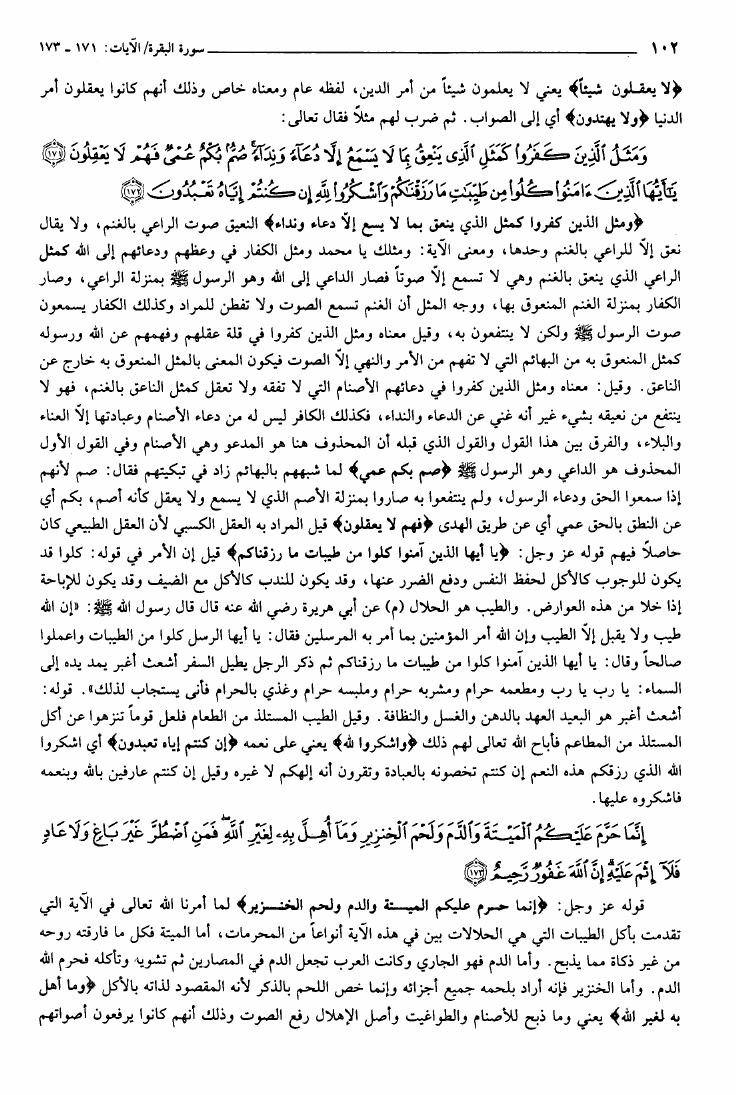 ١٠٢ سورة البقرة/ الآيات: ١٧١ - ١٧٣
﴿لا يعقلون شيئاً﴾ يعني لا يعلمون شيئاً من أمر الدين، لفظه عام ومعناه خاص وذلك أنهم كانوا يعقلون أمر
الدنيا ﴿ولا يهتدون﴾ أي إلى الصواب. ثم ضرب لهم مثلاً فقال تعالى:
وَمَثَلُ الَّذِينَ كَفَرُوا كَمَثَلِ الَّذِى يَنْعِقُ بِمَا لَا يَسْمَعُ إِلَّا دُعَآءً وَنِدَآءً صُمٌّ بُكْمٌ عُمْىٌ فَهُمْ لَا يَعْقِلُونَ ﴿١٧١﴾
يَٰٓأَيُّهَا الَّذِينَ ءَامَنُوا كُلُوا مِن طَيِّبَٰتِ مَا رَزَقْنَٰكُمْ وَاشْكُرُوا لِلَّهِ إِن كُنتُمْ إِيَّاهُ تَعْبُدُونَ ﴿١٧٢﴾
﴿ومثل الذين كفروا كمثل الذي ينعق بما لا يسع إلاّ دعاء ونداء﴾ النعيق صوت الراعي بالغنم، ولا يقال
نعق إلاّ للراعي بالغنم وحدها، ومعنى الآية: ومثلك يا محمد ومثل الكفار في وعظهم ودعائهم إلى الله كمثل
الراعي الذي ينعق بالغنم وهي لا تسمع إلاّ صوتاً فصار الداعي إلى الله وهو الرسول ﷺ بمنزلة الراعي، وصار
الكفار بمنزلة الغنم المنعوق بها، ووجه المثل أن الغنم تسمع الصوت ولا تفطن للمراد وكذلك الكفار يسمعون
صوت الرسول ﷺ ولكن لا ينتفعون به، وقيل معناه ومثل الذين كفروا في قلة عقلهم وفهمهم عن الله ورسوله
كمثل المنعوق به من البهائم التي لا تفهم من الأمر والنهي إلاّ الصوت فيكون المعنى بالمثل المنعوق به خارج عن
الناعق. وقيل: معناه ومثل الذين كفروا في دعائهم الأصنام التي لا تفقه ولا تعقل كمثل الناعق بالغنم، فهو لا
ينتفع من نعيقه بشيء غير أنه غني عن الدعاء والنداء، فكذلك الكافر ليس له من دعاء الأصنام وعبادتها إلاّ العناء
والبلاء، والفرق بين هذا القول والقول الذي قبله أن المحذوف هنا هو المدعو وهي الأصنام وفي القول الأول
المحذوف هو الداعي وهو الرسول ﷺ ﴿صم بكم عمي﴾ لما شبههم بالبهائم زاد في تبكيتهم فقال: صم لأنهم
إذا سمعوا الحق ودعاء الرسول، ولم ينتفعوا به صاروا بمنزلة الأصم الذي لا يسمع ولا يعقل كأنه أصم، بكم أي
عن النطق بالحق عمي أي عن طريق الهدى ﴿فهم لا يعقلون﴾ قيل المراد به العقل الكسبي لأن العقل الطبيعي كان
حاصلاً فيهم قوله عز وجل: ﴿يا أيها الذين آمنوا كلوا من طيبات ما رزقناكم﴾ قيل إن الأمر في قوله: كلوا قد
يكون للوجوب كالأكل لحفظ النفس ودفع الضرر عنها، وقد يكون للندب كالأكل مع الضيف وقد يكون للإباحة
إذا خلا من هذه العوارض. والطيب هو الحلال (م) عن أبي هريرة رضي الله عنه قال قال رسول الله ﷺ: «إن الله
طيب ولا يقبل إلاّ الطيب وإن الله أمر المؤمنين بما أمر به المرسلين فقال: يا أيها الرسل كلوا من الطيبات واعملوا
صالحاً وقال: يا أيها الذين آمنوا كلوا من طيبات ما رزقناكم ثم ذكر الرجل يطيل السفر أشعث أغبر يمد يده إلى
السماء: يا رب يا رب ومطعمه حرام ومشربه حرام وملبسه حرام وغذي بالحرام فأنى يستجاب لذلك». قوله:
أشعث أغبر هو البعيد العهد بالدهن والغسل والنظافة. وقيل الطيب المستلذ من الطعام فلعل قوماً تنزهوا عن أكل
المستلذ من المطاعم فأباح الله تعالى لهم ذلك ﴿واشكروا لله﴾ يعني على نعمه ﴿إن كنتم إياه تعبدون﴾ أي اشكروا
الله الذي رزقكم هذه النعم إن كنتم تخصونه بالعبادة وتقرون أنه إلهكم لا غيره وقيل إن كنتم عارفين بالله وبنعمه
فاشكروه عليها.
إِنَّمَا حَرَّمَ عَلَيْكُمُ الْمَيْتَةَ وَالدَّمَ وَلَحْمَ الْخِنزِيرِ وَمَآ أُهِلَّ بِهِۦ لِغَيْرِ اللَّهِ فَمَنِ اضْطُرَّ غَيْرَ بَاغٍ وَلَا عَادٍ
فَلَآ إِثْمَ عَلَيْهِ إِنَّ اللَّهَ غَفُورٌ رَّحِيمٌ ﴿١٧٣﴾
قوله عز وجل: ﴿إنما حرم عليكم الميتة والدم ولحم الخنزير﴾ لما أمرنا الله تعالى في الآية التي
تقدمت بأكل الطيبات التي هي الحلالات بين في هذه الآية أنواعاً من المحرمات، أما الميتة فكل ما فارقته روحه
من غير ذكاة مما يذبح. وأما الدم فهو الجاري وكانت العرب تجعل الدم في المصارين ثم تشويه وتأكله فحرم الله
الدم. وأما الخنزير فإنه أراد بلحمه جميع أجزائه وإنما خص اللحم بالذكر لأنه المقصود لذاته بالأكل ﴿وما أهل
به لغير الله﴾ يعني وما ذبح للأصنام والطواغيت وأصل الإهلال رفع الصوت وذلك أنهم كانوا يرفعون أصواتهم